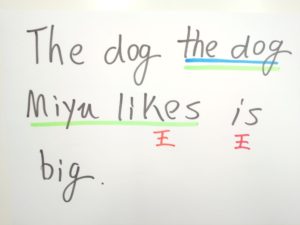 The dog the dog
Miyu likes is
王 王
big.